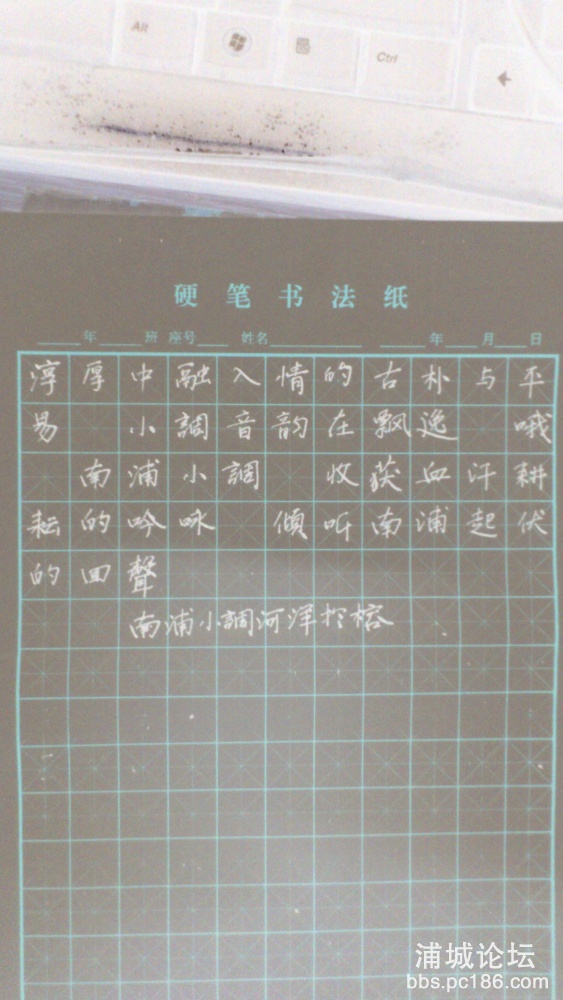 Alt
Ctrl
硬笔书法纸
年 班 座号 姓名 年 月 日
淳厚中融入情的古朴与平
易 小調音韵在飘逸 哦
南浦小調 收获血汗耕
耘的吟咏 倾听南浦起伏
的回聲
南浦小調河洋於榕
浦城论坛
bbs.pc186.com